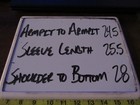 Armpit to Armpit 24.5
Sleeve Length 25.5
Shoulder to Bottom 28